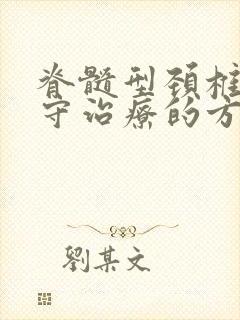 脊髓型颈椎
守治療的方
劉某文